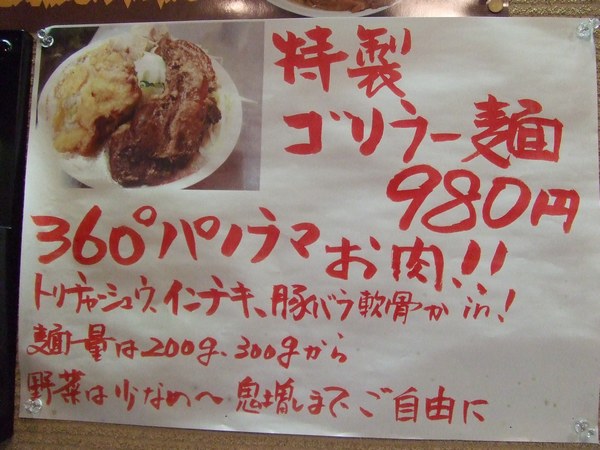 特製
ゴリラー麺
980円
360°パノラマお肉!!
トリチャーシュウ、インチキ、豚バラ軟骨が in!
麺量は200g、300gから
野菜は少なめ〜鬼増しまでご自由に